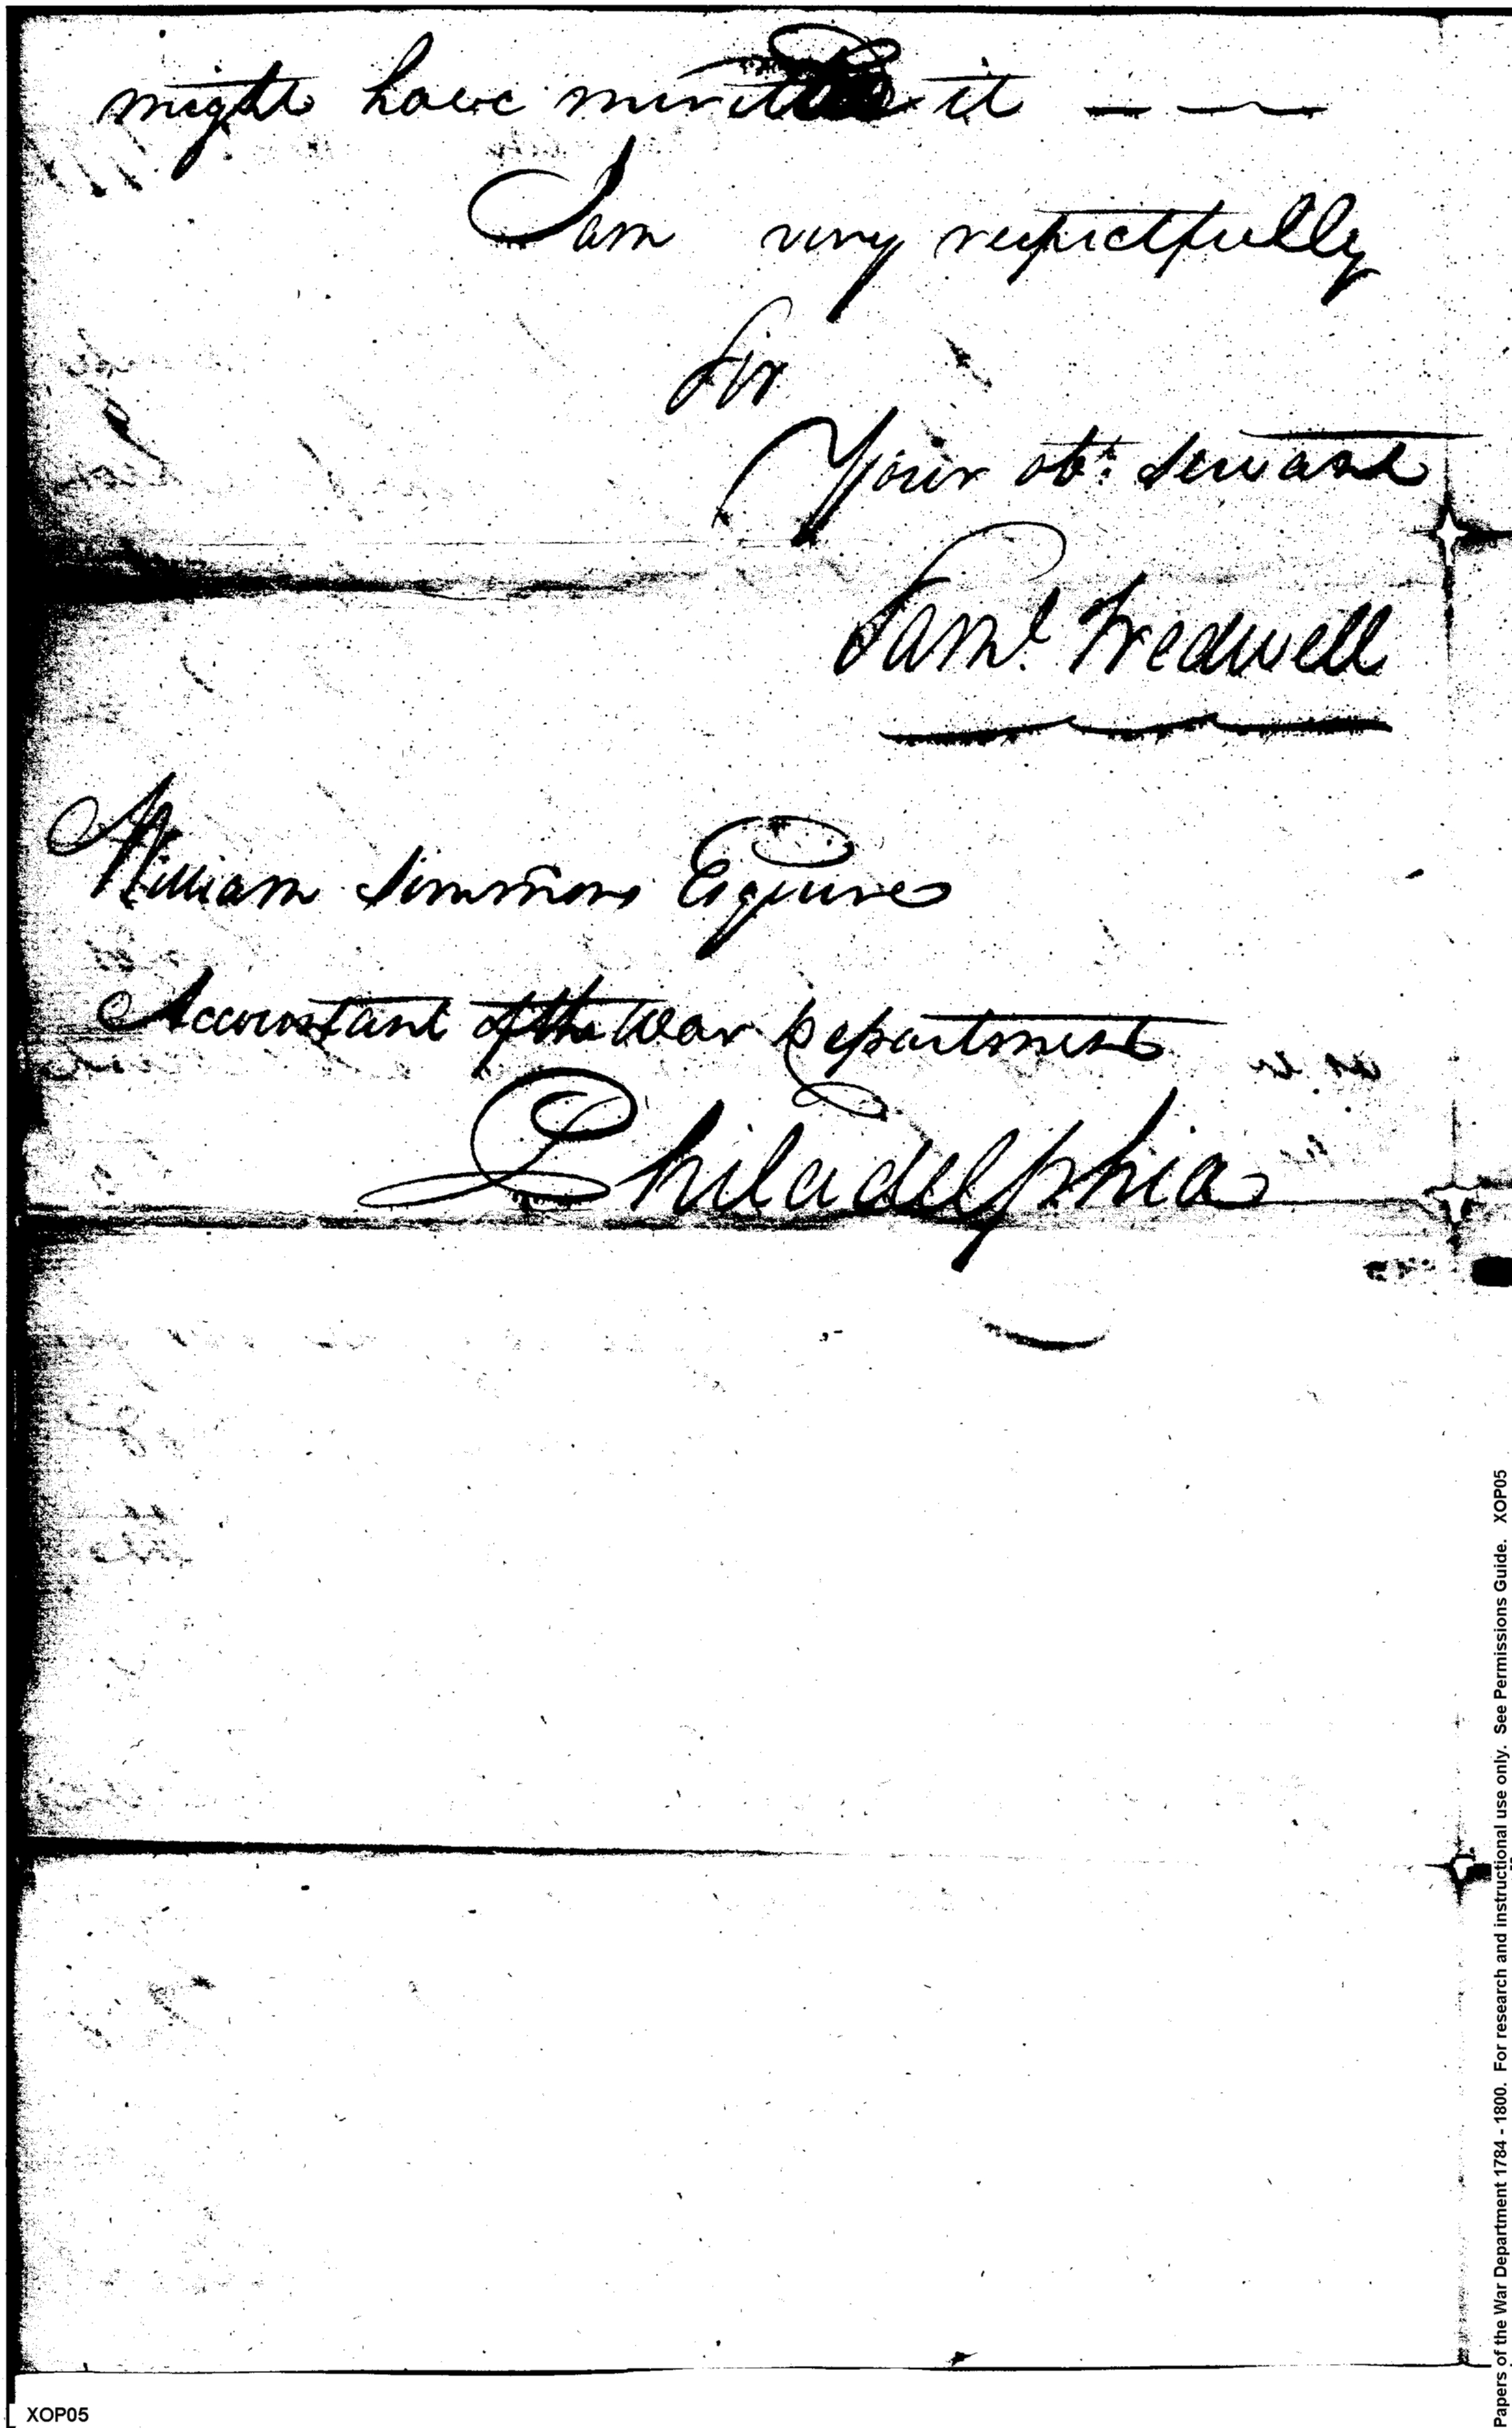 might have merited it — —
I am very respectfully
Sir
Your obt. servant
Saml. Tredwell
William Simmons Esquire
Accountant of the War Department
Philadelphia
XOP05
Papers of the War Department 1784 - 1800. For research and instructional use only. See Permissions Guide. XOP05